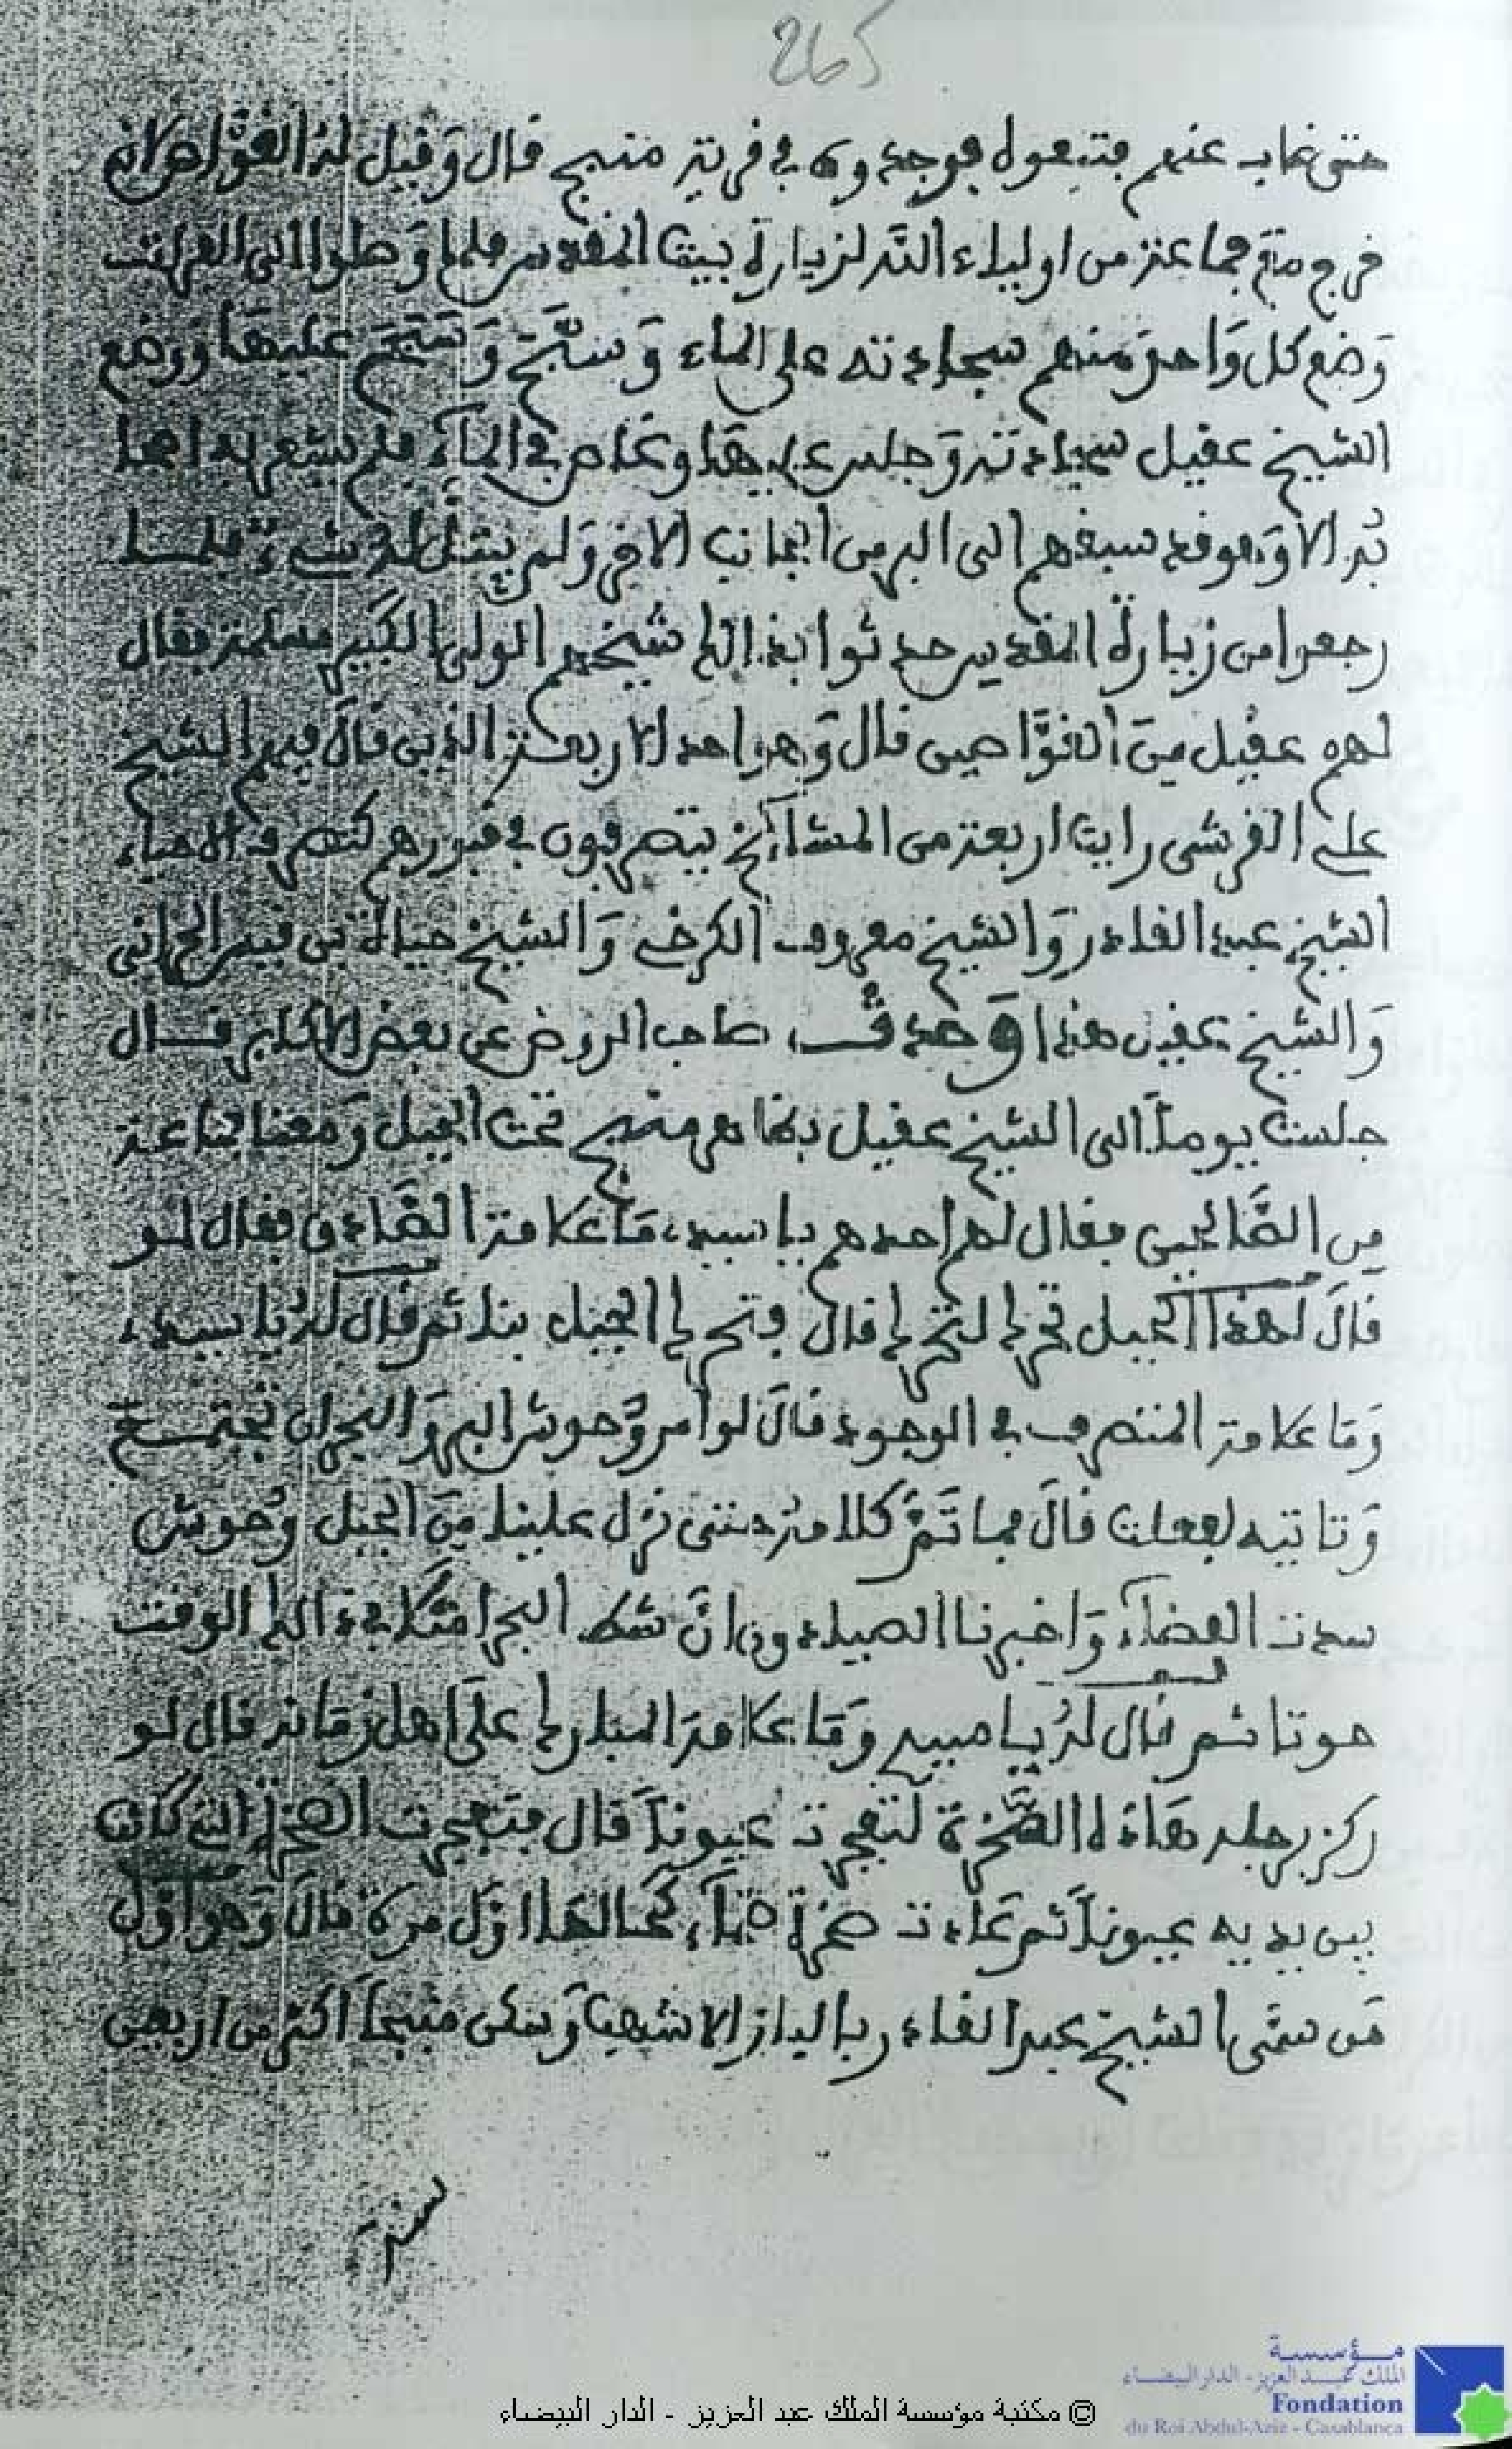 265
حتى غاب عنهم فتبعوه فوجدوه في قرية منبج قال وقيل له الغوّاص لانه
خرج مع جماعة من اولياء الله لزيارة بيت المقدس فلما وصلوا الى الفرات
وضع كل واحد منهم سجادته على الماء وسبّح وتقدم عليها ووضع
الشيخ عقيل سجادته وجلس عليها وغاص في الماء فلم يشعر به اصحا
به الا وهو قد سبقهم الى البر من الجانب الاخر ولم يبتل له شيء فلما
رجعوا من زيارة المقدس حدثوا بذالك شيخهم الولي الكبير مسلمة فقال
لهم عقيل من الغوّاصين قال وهو احد الاربعة الذين قال فيهم الشيخ
علي القرشي رايت اربعة من المشائخ يتصرفون في قبورهم كتصرف الاحياء
الشيخ عبد القادر والشيخ معروف الكرخي والشيخ حياة بن قيس الحراني
والشيخ عقيل هذا وحدث صاحب الروض عن بعض الاكابر قال
جلست يوماً الى الشيخ عقيل بظاهر منبج تحت الجبل ومعنا جماعة
من الصّالحين فقال لهم احدهم يا سيدي ما علامة الصّادق فقال لو
قال لهذا الجبل تحرك لتحرك قال فتحرك الجبل بنا ثم قال له يا سيدي
وما علامة المتصرف في الوجود قال لو امر وحوش البر والبحر ان تجتمع
وتاتيه لفعلت قال فما تمّ كلامه حتى نزل علينا من الجبل وحوش
سدت الفضاء واخبرنا الصيادون انّ شط البحر امتلا في ذالك الوقت
حوتا ثم قال له يا سيدي وما علامة المبارك على اهل زمانه قال لو
ركز برجله هاذه الصّخرة لتفجرت عيوناً قال فتفجرت الصخرة التي كانت
بين يديه عيوناً ثم عادت صخرة صمّاء كحالها اوّل مرة قال وهو اوّل
من سمّى الشيخ عبد القادر بالباز الاشهب وسكن منبجا اكثر من اربعين
سنة
© مكتبة مؤسسة الملك عبد العزيز - الدار البيضاء
مؤسسة
الملك عبد العزيز - الدار البيضاء
Fondation
du Roi Abdul-Aziz - Casablanca